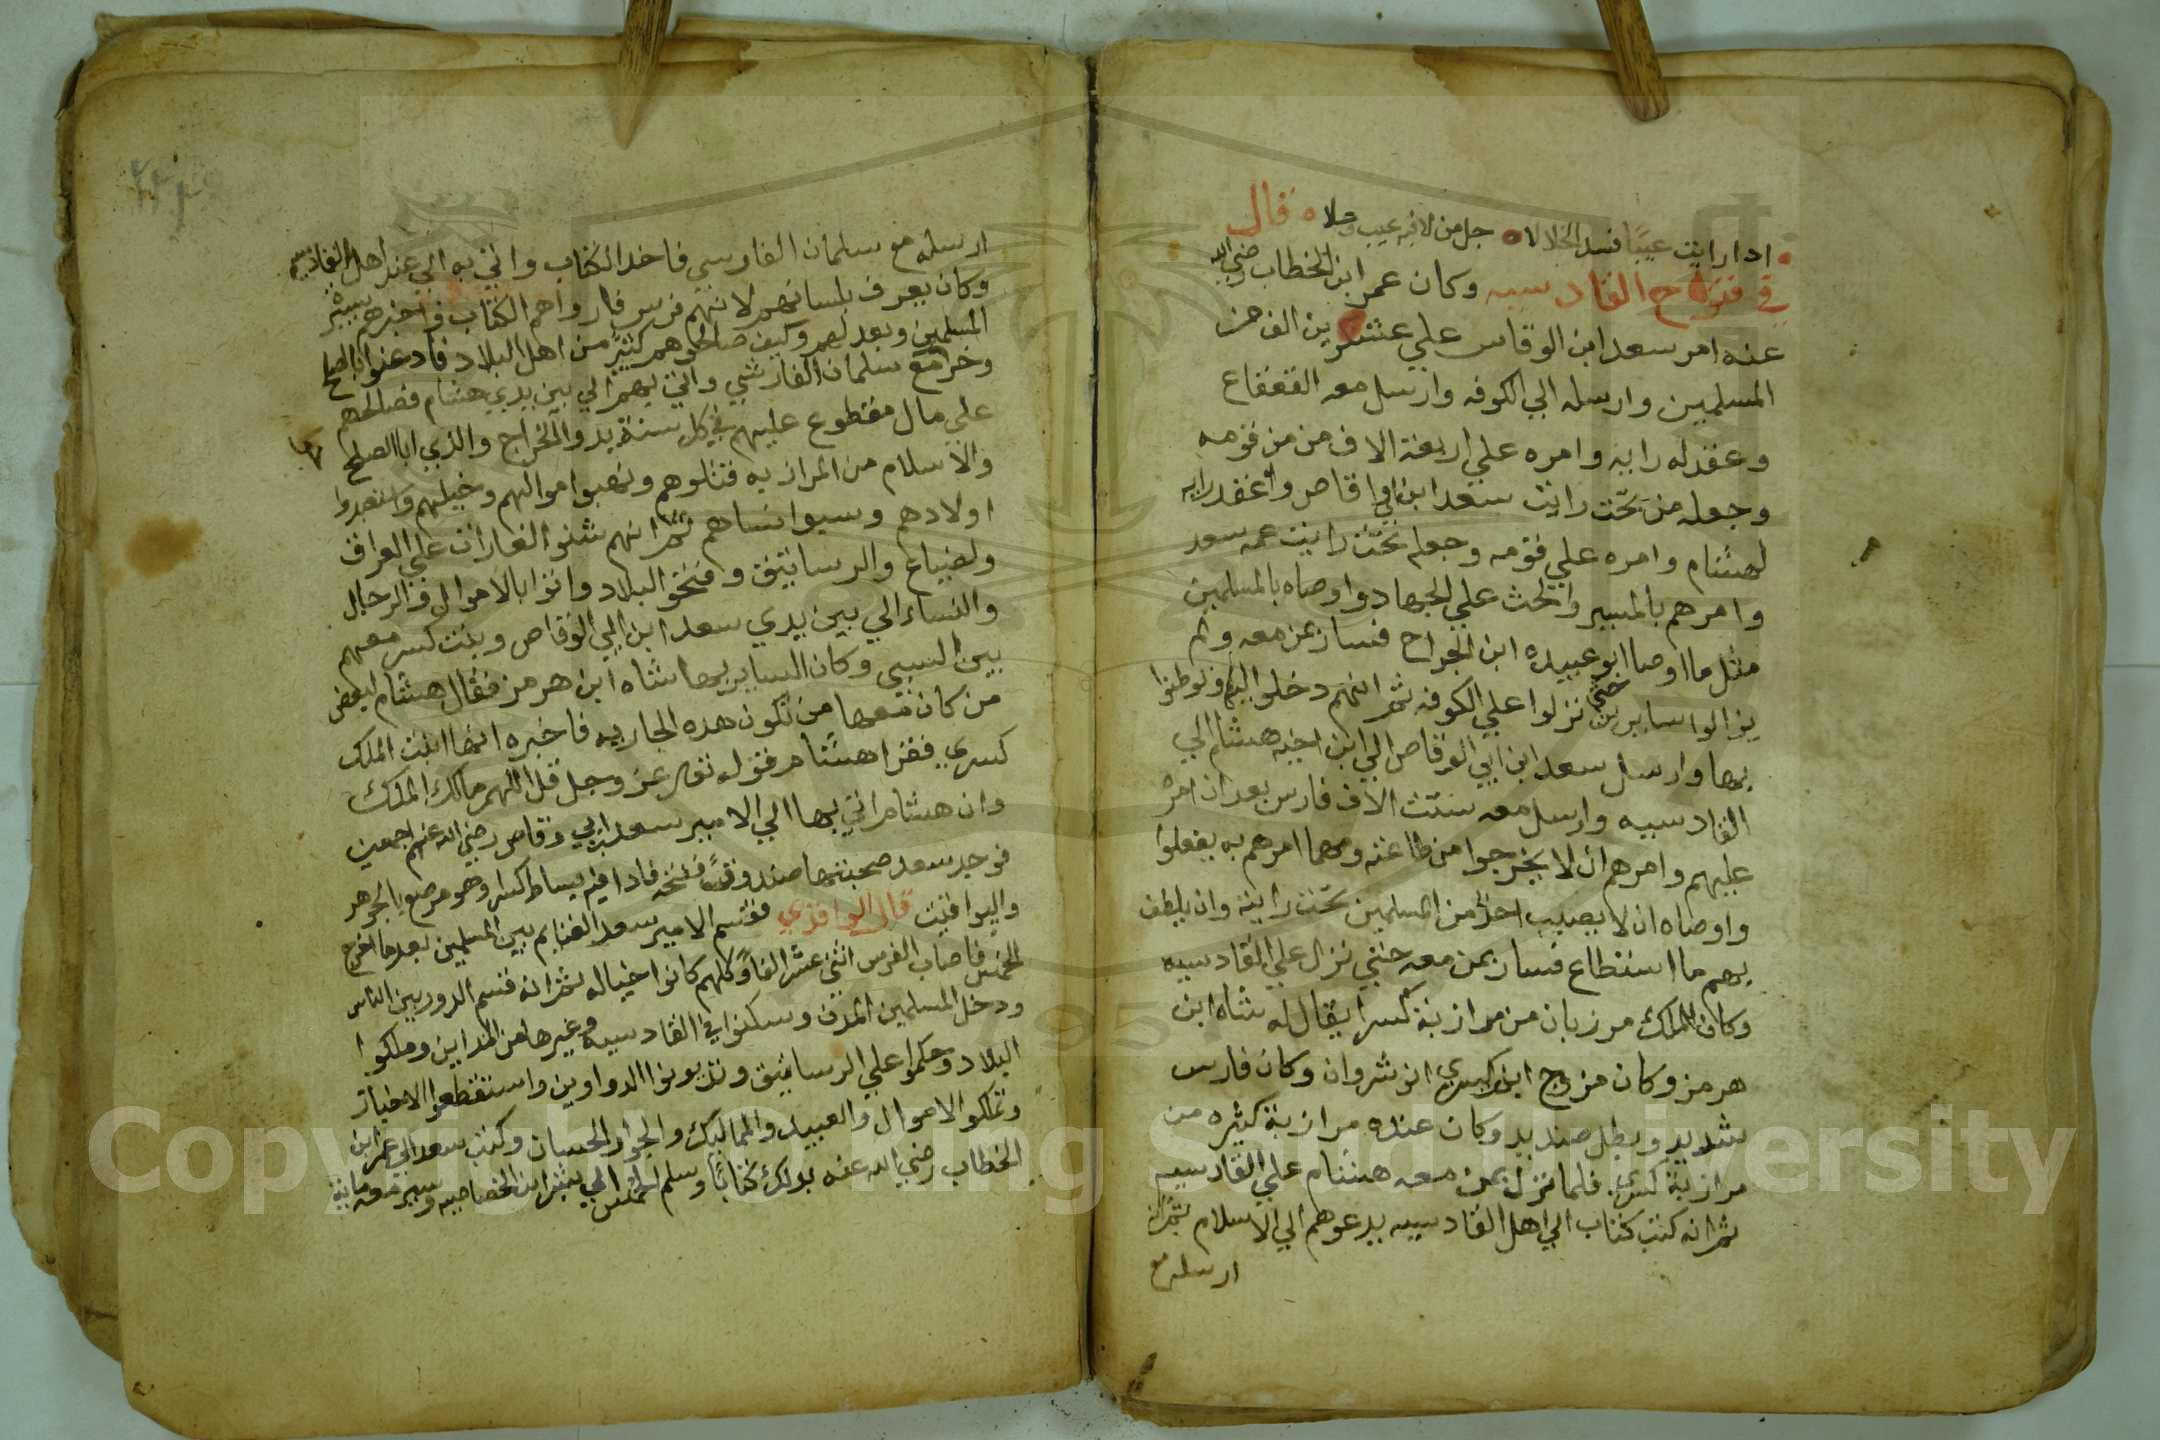 ادا رايت عيبًا فسد الخلالا جل من لا فيه عيب وعلا قال
في فتوح القادسيه وكان عمر ابن الخطاب رضي الله
عنه امر سعد ابن الوقاس علي عشرين الف من
المسلمين وارسله الي الكوفه وارسل معه القعقاع
وعقد له رايه وامره علي اربعة الاف من من قومه
وجعله من تحت رايت سعد ابن ابي واقاص واعقد رايه
لهشام وامره علي قومه وجعله تحت رايت عمه سعد
وامرهم بالمسير والحث علي الجهاد واوصاه بالمسلمين
مثل ما اوصا ابو عبيده ابن الجراح فسار بمن معه ولم
يزالوا سايرين حتي نزلوا علي الكوفه ثمر انهم دخلوا اليها وتوطنوا
بها وارسل سعد ابن ابي الوقاص الي ابن اخيه هشام الي
القادسيه وارسل معه ستت الاف فارس بعد ان امره
عليهم وامرهم ان لا يخرجوا من طاعته ومهما امرهم به يفعلوا
واوصاه ان لا يصيب احدًا من المسلمين تحت رايته وان يلطف
بهم ما استطاع فسار بمن معه حتي نزل علي القادسيه
وكان الملك مرزبان من مرازبة كسرا يقال له شاه ابن
هرمز وكان من زوج ابنت كسري انوشروان وكان فارس
شديد وبطل صنديد وكان عنده مرازبة كثيره من
مرازبة كسري فلما نزل بمن معه هشام علي القادسيه
ثمر انه كتب كتاب الي اهل القادسيه يدعوهم الي الاسلام ثمر
ارسله مع
ارسله مع سلمان الفارسي فاخد الكتاب واتي به الي عند اهل القادسيه
وكان يعرف بلسانهم لانهم فرس فاروا هم الكتاب واخبرهم بسيرة
المسلمين وبعدلهم وكيف صالحوهم كثيرًا من اهل البلاد فادعنوا بالصلح
وخرا مع سلمان الفارسي واتي بهم الي بين يدي هشام فصالحهم
علي مال مقطوع عليهم في كل سنة يدو الخراج والدي ابا الصلح
والاسلام من المرازبه قتلوهم ونهبوا موالهم وخيلهم واستعبدوا
اولادهم وسبوا نساهم ثمر انهم شنوا الغارات علي العراق
ولضياع والرساتيق وفتحو البلاد واتوا بالاموال والرجال
والنساء الي بين يدي سعد ابن ابي الوقاص وبنت كسر معهم
بين السبي وكان الساير بها شاه ابن هرمز فقال هشام لبعض
من كان معها من تكون هده الجاريه فاخبره انها ابنت الملك
كسري فقرا هشام قوله تعالي عز وجل قل اللهم مالك الملك
وان هشام اتي بها الي الامير سعد ابن ابي وقاص رضي الله عنهم اجمعين
فوجد سعد صحبتها صندوق ففتحه فادا فيه بساط كسرا وهو مرصع بالجوهر
واليواقيت قال الواقدي فقسم الامير سعد الغنايم بين المسلمين بعد ما اخرج
الخمس فاصاب الفرس اثني عشر الفا وكلهم كانوا خياله ثمر انه قسم الدور بين الناس
ودخل المسلمين المدن وسكنوا في القادسيه وغيرها من المداين وملكوا
البلاد وحكموا علي الرساتيق وتدونوا الدواوين واستقطعوا الاخياز
وتملكوا الاموال والعبيد والمماليك والجوار الحسان وكتب سعد الي عمر ابن
الخطاب رضي الله عنه بدلك كتابًا وسلم الخمس الي بشر ابن الخصاصيه وسير معه ماية
Copyright © King Saud University
1957